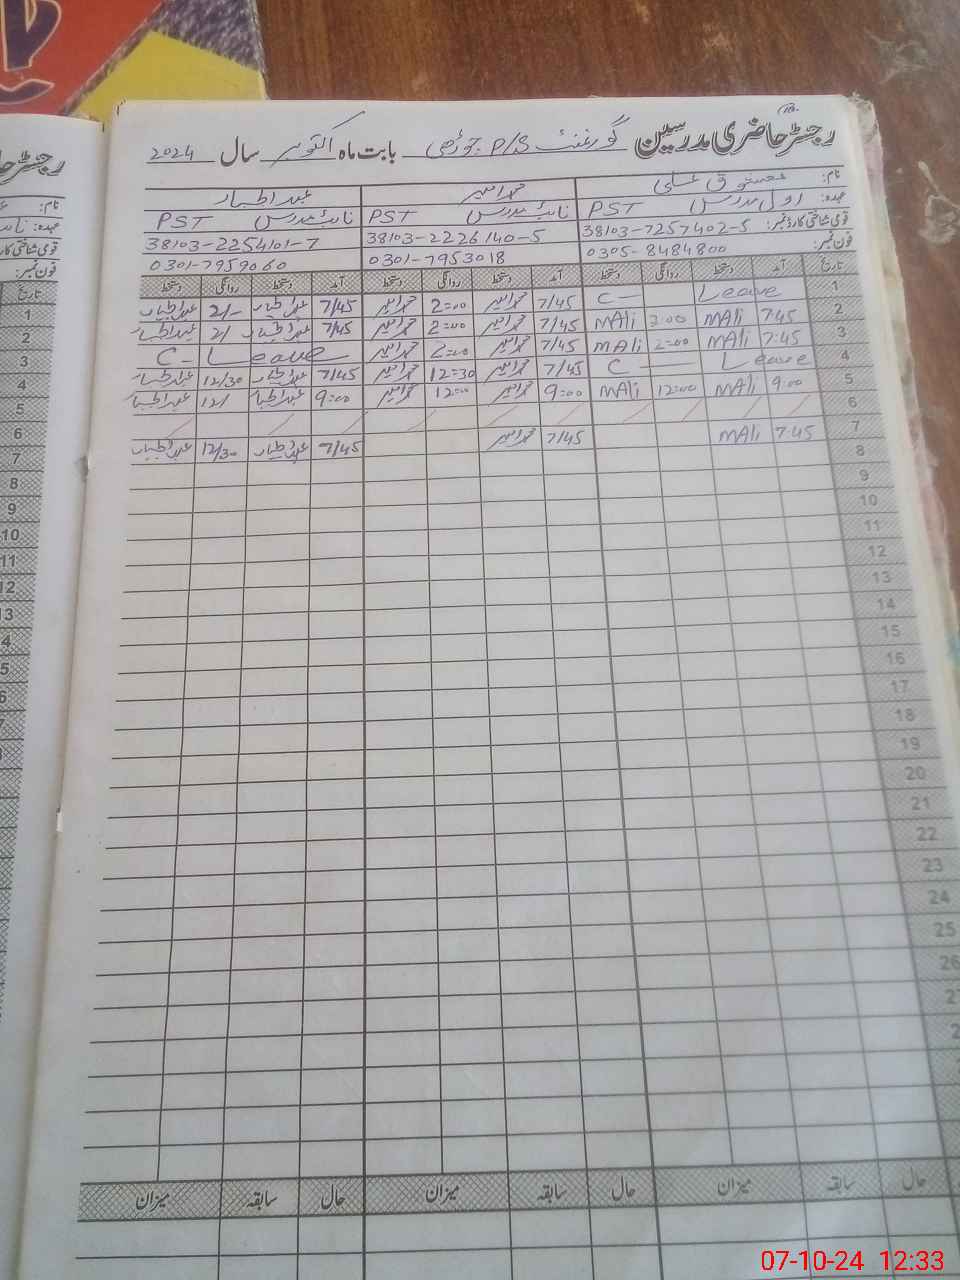 رجسٹر حاضری مدرسین گورنمنٹ P/S جوڑھی بابت ماہ اکتوبر سال 2024
نام: معشوق علی محمد امیر عبدالجبار
عہدہ: اول مدرس PST نائب مدرس PST نائب مدرس PST
قومی شناختی کارڈ نمبر: 38103-7257402-5 38103-2226140-5 38103-2254101-7
فون نمبر: 0305-8484800 0301-7953018 0301-7959060
تاریخ آمد دستخط روانگی دستخط آمد دستخط روانگی دستخط آمد دستخط روانگی دستخط
1 C- Leave 7/45 محمد امیر 2=00 محمد امیر 7/45 عبدالجبار 2/- عبدالجبار
2 7:45 MAli 2:00 MAli 7/45 محمد امیر 2=00 محمد امیر 7/45 عبدالجبار 2/ عبدالجبار
3 7:45 MAli 2=00 MAli 7/45 محمد امیر 2=00 محمد امیر C- Leave
4 C Leave 7/45 محمد امیر 12=30 محمد امیر 7/45 عبدالجبار 12/30 عبدالجبار
5 9:00 MAli 12:00 MAli 9=00 محمد امیر 12=00 محمد امیر 9=00 عبدالجبار 12/ عبدالجبار
6
7 7:45 MAli 7/45 محمد امیر 7/45 عبدالجبار 12/30 عبدالجبار
8
9
10
11
12
13
14
15
16
17
18
19
20
21
22
23
24
25
26
حال سابقہ میزان حال سابقہ میزان حال سابقہ میزان
رجسٹر
نام:
عہدہ:
قومی شناختی کارڈ
فون نمبر:
تاریخ
1
2
3
4
5
6
7
8
9
10
11
12
13
07-10-24 12:33